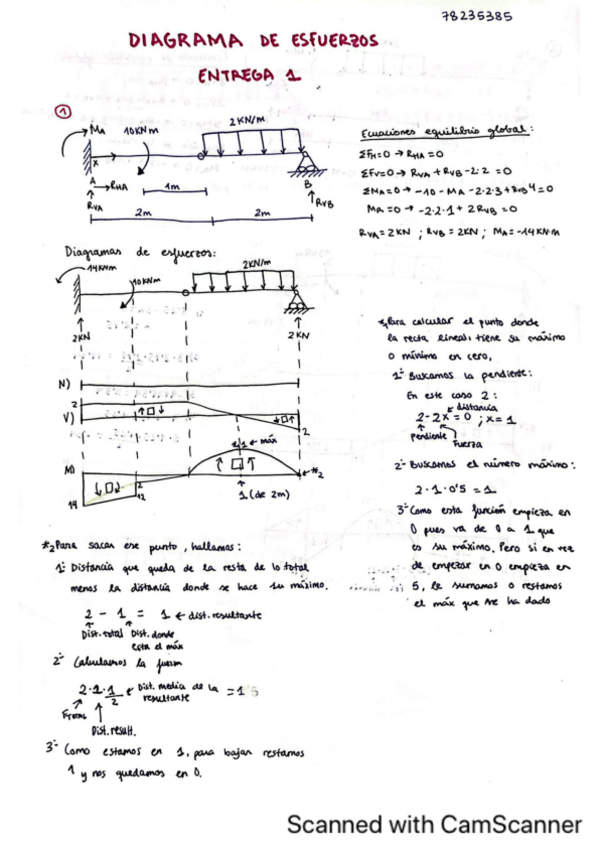 78235385
DIAGRAMA DE ESFUERZOS
ENTREGA 1
①
MA 10KNm 2KN/m
X
A → RHA 1m B
RVA RVB
2m 2m
Ecuaciones equilibrio global:
ΣFH=0 → RHA = 0
ΣFV=0 → RVA + RVB - 2·2 = 0
ΣMA=0 → -10 - MA - 2·2·3 + RVB 4 = 0
MR=0 → -2·2·1 + 2RVB = 0
RVA = 2KN ; RVB = 2KN ; MA = -14KN·m
Diagramas de esfuerzos:
14KNm 10KNm 2KN/m
2KN 2KN
N)
2
V)
2
1 ← máx
M)
*2
2
14 12 1 (de 2m)
*1 Para calcular el punto donde
la recta lineal, tiene su máximo
o mínimo en cero,
1º Buscamos la pendiente:
En este caso 2:
distancia
2-2x=0 ; x=1
Pendiente Fuerza
2º Buscamos el número máximo:
2·1·0'5 = 1
3º Como esta función empieza en
0 pues va de 0 a 1 que
es su máximo. Pero si en vez
de empezar en 0 empieza en
5, le sumamos o restamos
el máx que nos ha dado
*2 Para sacar ese punto, hallamos:
1º Distancia que queda de la resta de lo total
menos la distancia donde se hace su máximo.
2 - 1 = 1 ← dist. resultante
Dist. total Dist. donde
esta el máx
2º Calculamos la fuerza
2·1·1/2 ← Dist. media de la = 1
resultante
FTOTAL
Dist. result.
3º Como estamos en 1, para bajar restamos
1 y nos quedamos en 0.
Scanned with CamScanner